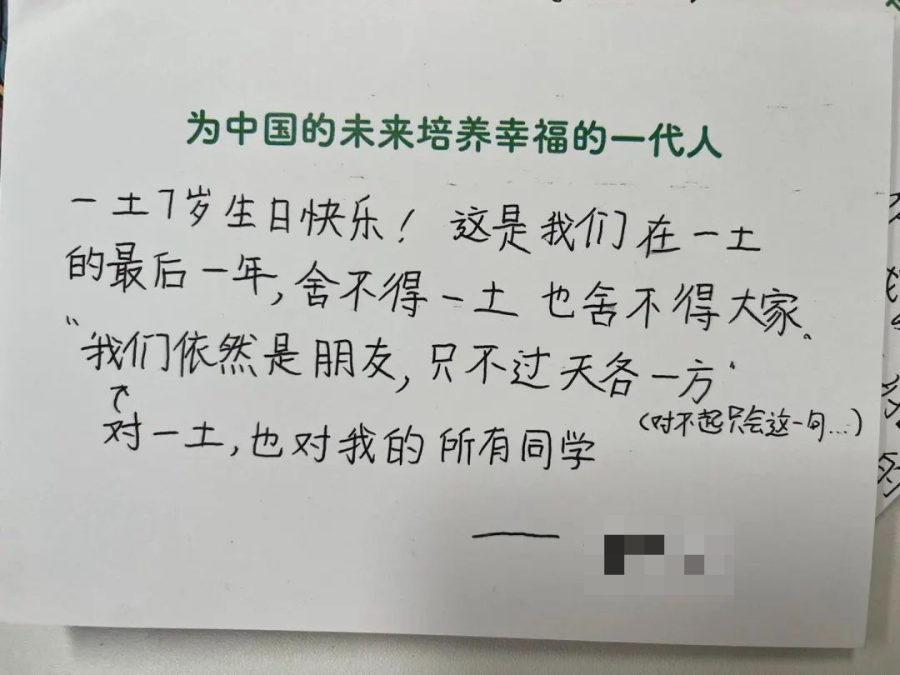 为中国的未来培养幸福的一代人
一土7岁生日快乐！ 这是我们在一土
的最后一年，舍不得一土 也舍不得大家、
“我们依然是朋友，只不过天各一方”
（对不起只会这一句…）
对一土，也对我的所有同学
——